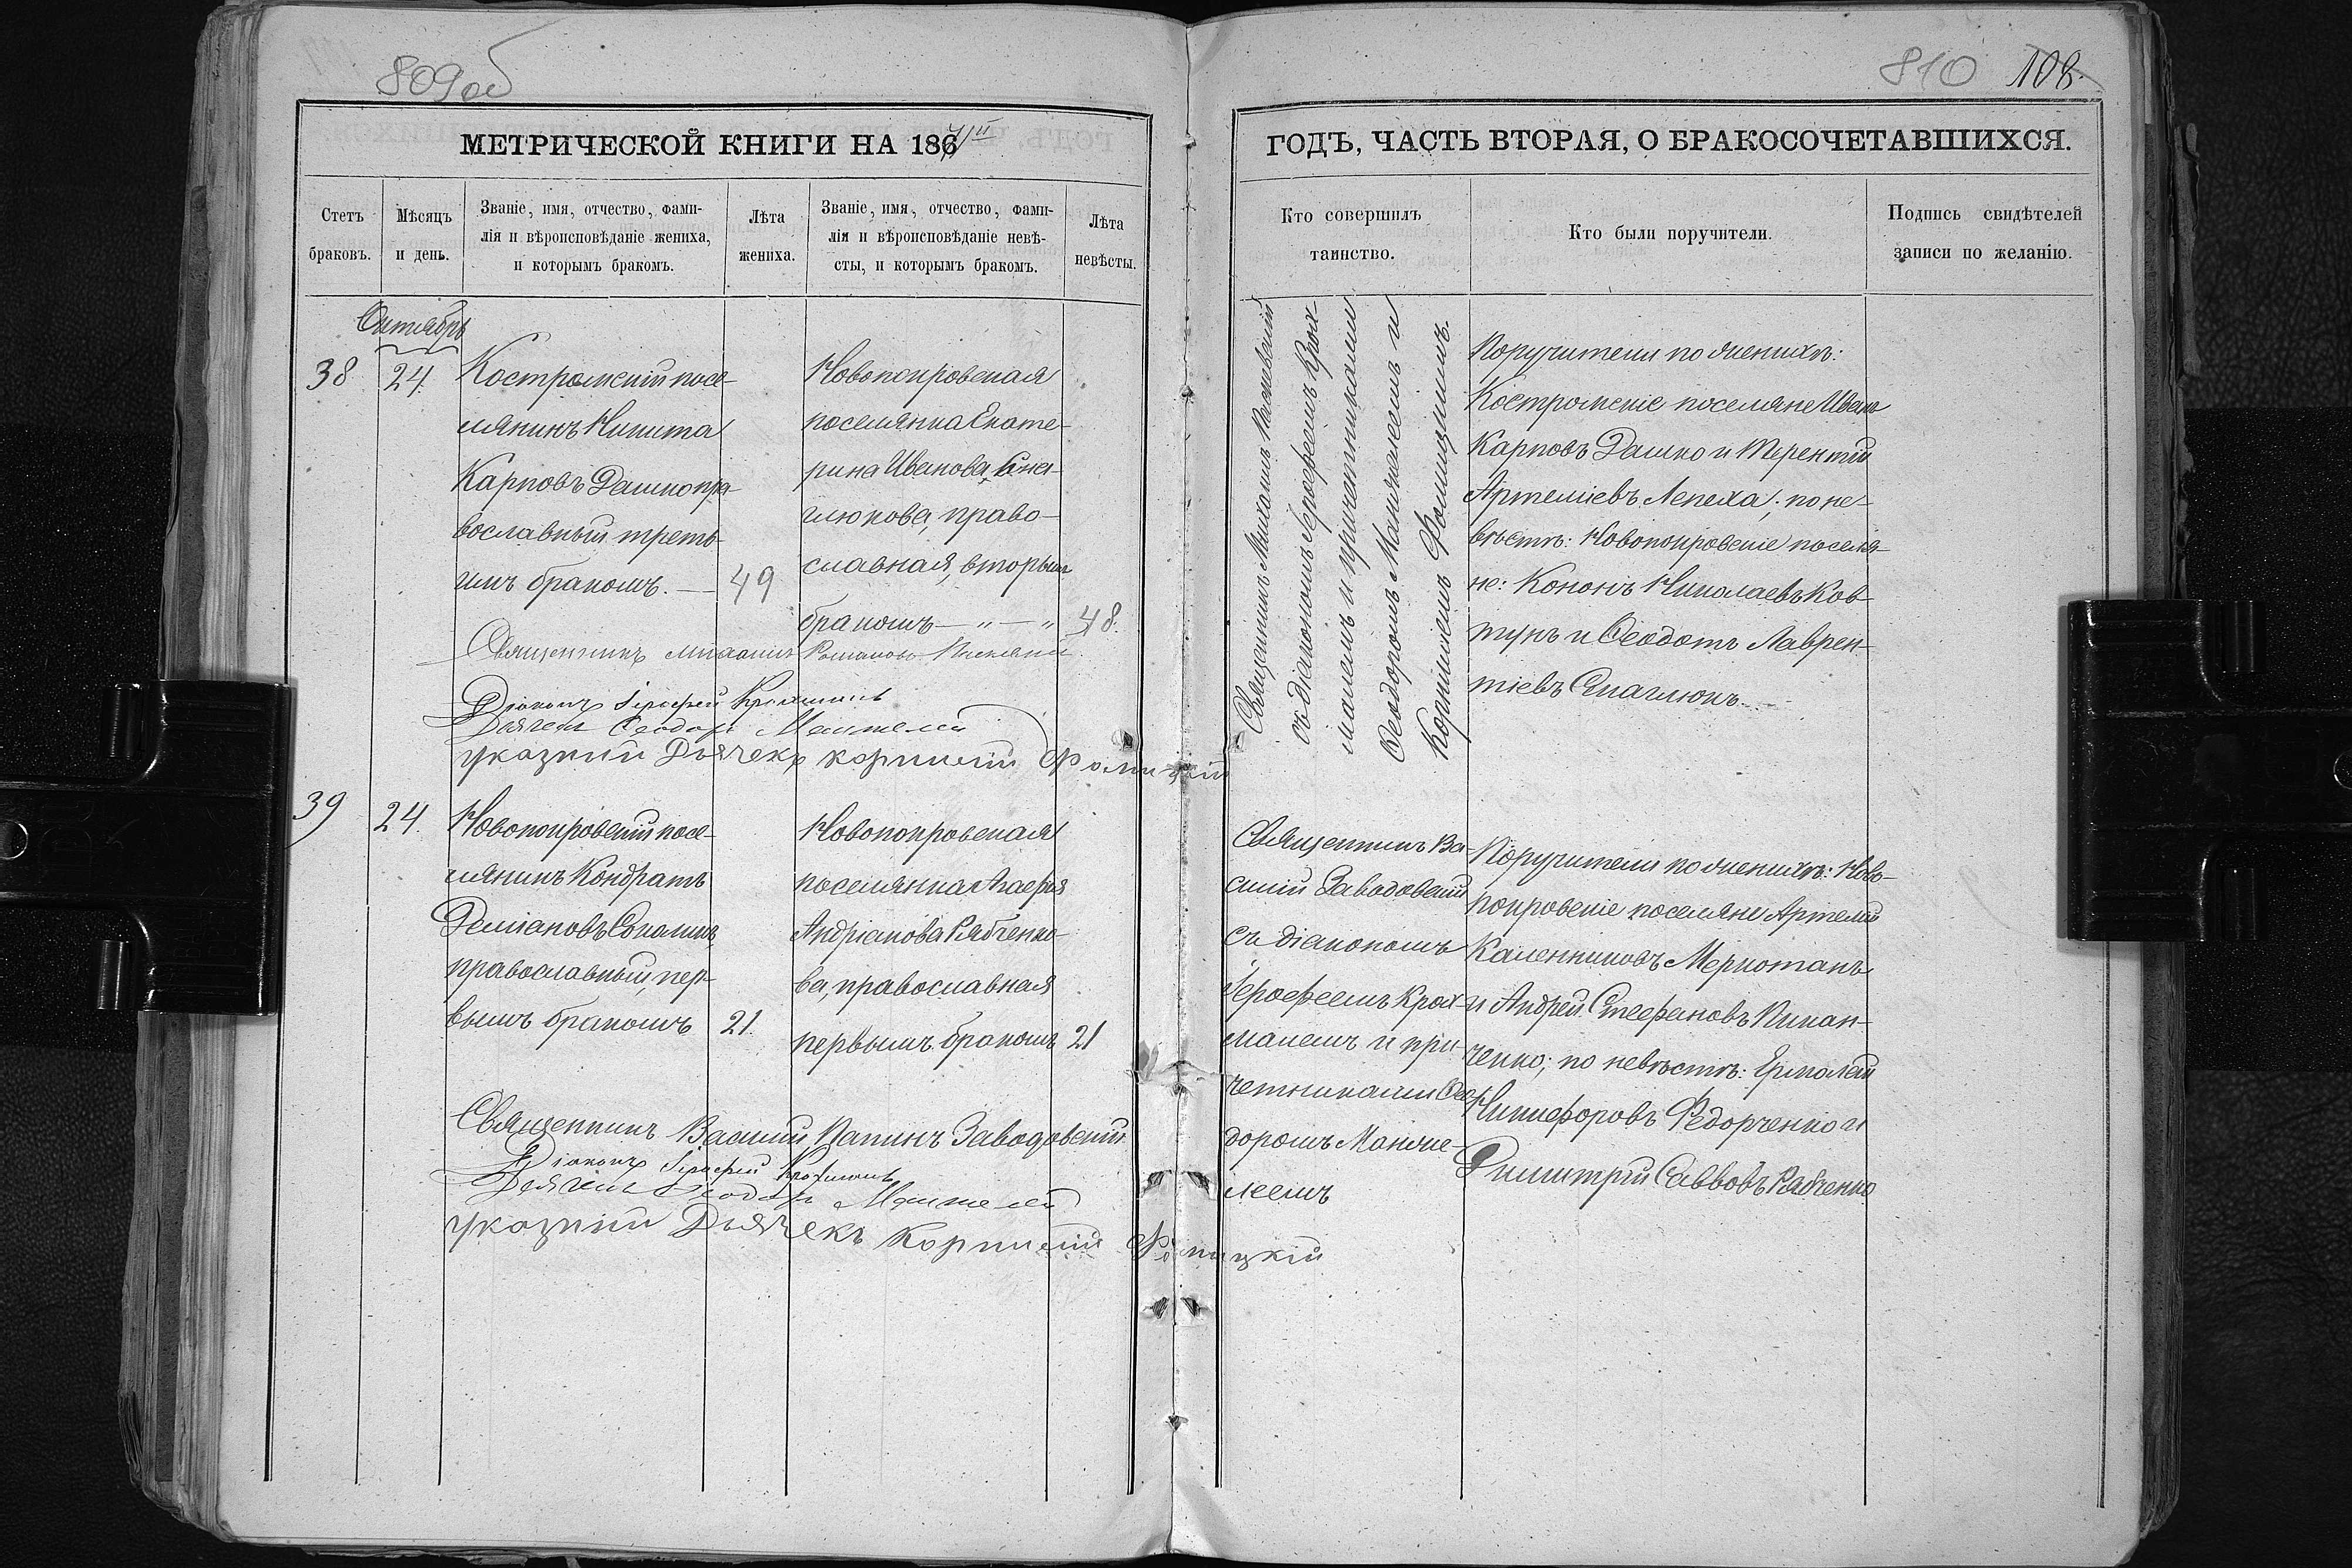 809 об
МЕТРИЧЕСКОЙ КНИГИ НА 186
Счетъ браковъ.
Мѣсяцъ и день.
Званіе, имя, отчество, фами-
лія и вѣроисповѣданіе жениха,
и которымъ бракомъ.
Лѣта жениха.
Званіе, имя, отчество, фами-
лія и вѣроисповѣданіе невѣ-
сты, и которымъ бракомъ.
Лѣта невѣсты.
Октябрь
38
24.
Костромскій посе-
лянинъ Никита
Карповъ Дашко пра-
вославный треть-
имъ бракомъ. —
49
Новопокровская
поселянка Екате-
рина Иванова
православная, вторымъ
бракомъ — „ — „
48.
Священникъ Михаилъ
Діаконъ Іерофей
Дьячекъ Ѳеодоръ
указный Дьячекъ Корнилій Фомицкій
39
24.
Новопокровскій посе-
лянинъ Кондратъ
Деміановъ
православный, пер-
вымъ бракомъ
21.
Новопокровская
поселянка Агафія
Андріанова Рябченко-
ва, православная
первымъ бракомъ
21
Священникъ Василій Заводовскій
Діаконъ Іерофей
Дьячекъ Ѳеодоръ
указный Дьячекъ Корнилій Фомицкій
810 108.
ГОДЪ, ЧАСТЬ ВТОРАЯ, О БРАКОСОЧЕТАВШИХСЯ.
Кто совершилъ
таинство.
Кто были поручители.
Подпись свидѣтелей
записи по желанію.
Священникъ Михаилъ
съ діакономъ Іерофеемъ Крох-
малемъ и причетниками
Ѳеодоромъ и
Корниліемъ Фомицкимъ.
Поручители по женихѣ:
Костромскіе поселяне Иванъ
Карповъ Дашко и Терентій
Артеміевъ Лепеха; по не-
вѣстѣ: Новопокровскіе поселя-
не: Кононъ Николаевъ Ков-
тунъ и Ѳеодотъ Лаврен-
тіевъ
Священникъ Ва-
силій Заводовскій
съ діакономъ
Іерофеемъ Крох-
малемъ и при-
четниками Ѳео-
доромъ
Поручители по женихѣ: Ново-
покровскіе поселяне Артемій
Каленниковъ
и Андрей Стефановъ
по невѣстѣ: Ермолай
Никифоровъ Федорченко и
Димитрій Саввовъ Рябченко